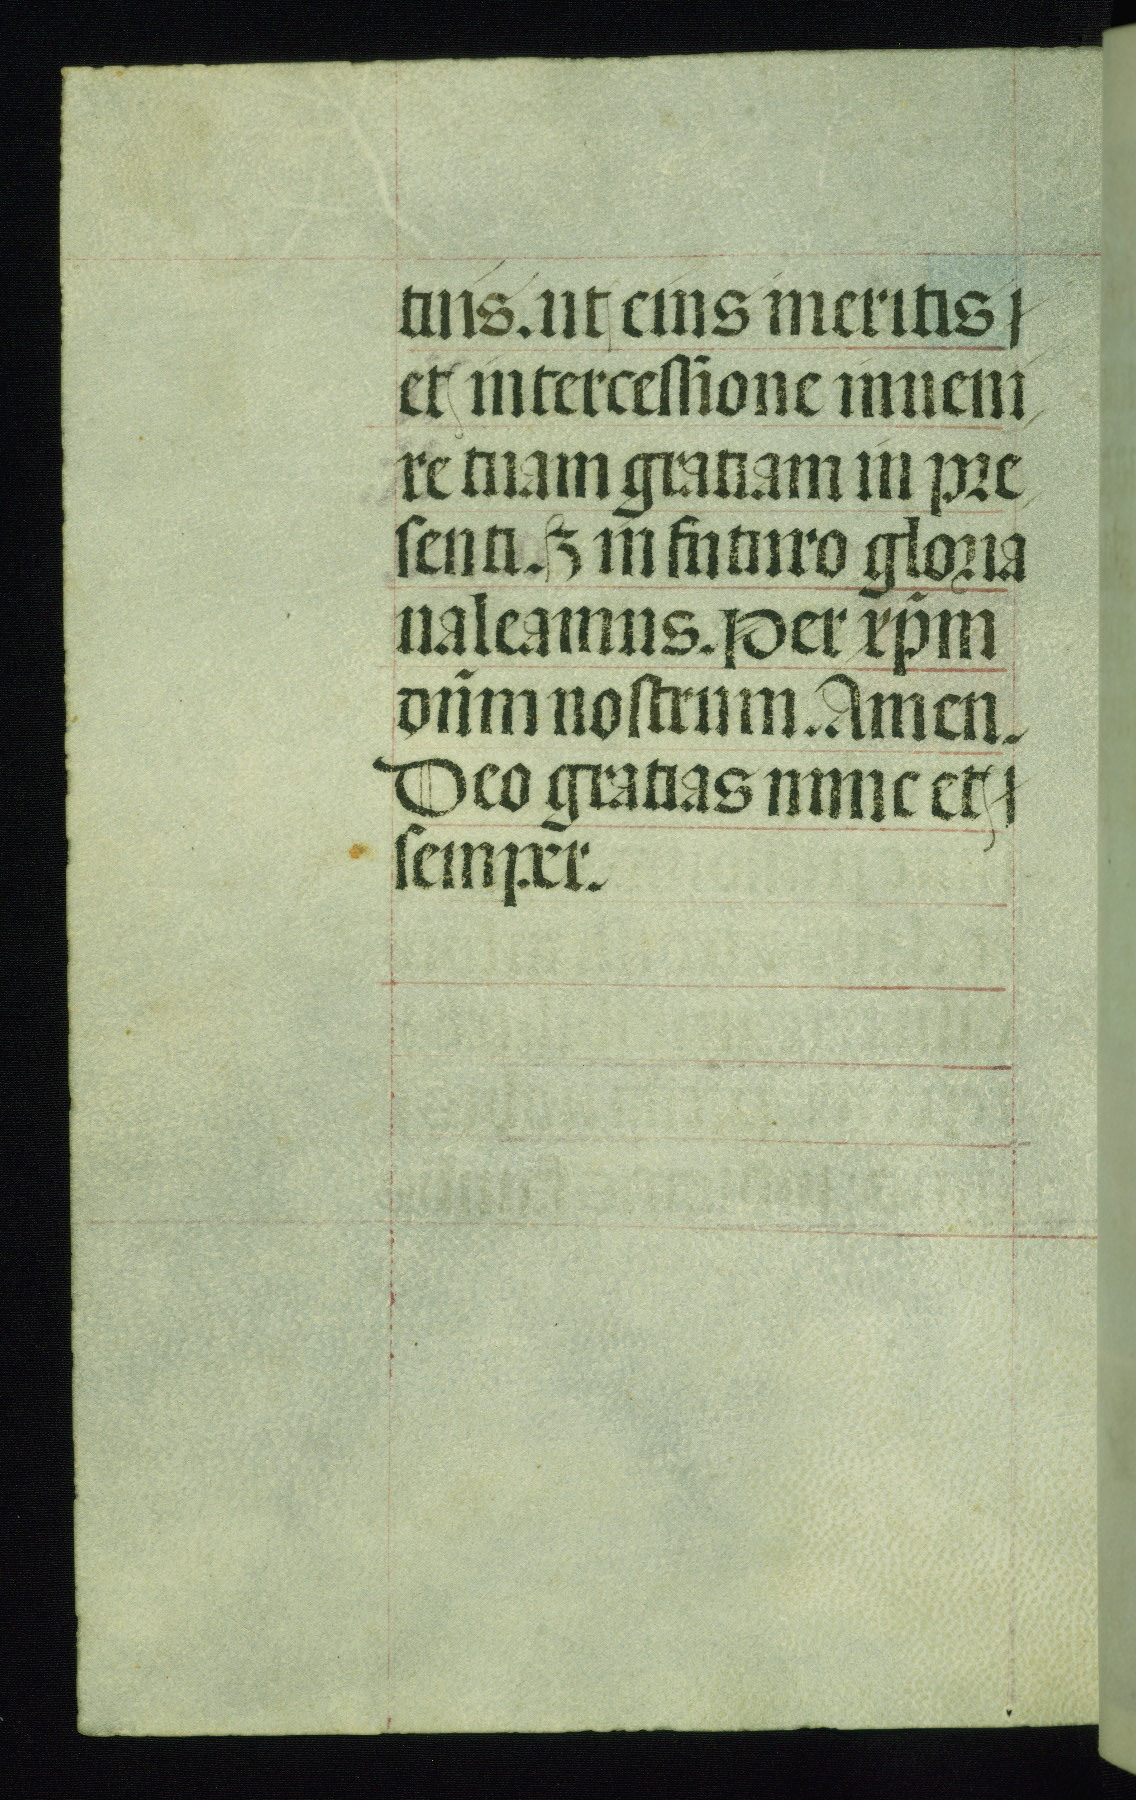 tuis. ut eius meritis
et intercessione inueni
re tuam gratiam in pre
senti. ⁊ in futuro gloria
ualeamus. Per xp̄m
dn̄m nostrum. Amen.
Deo gratias nunc et
semper.